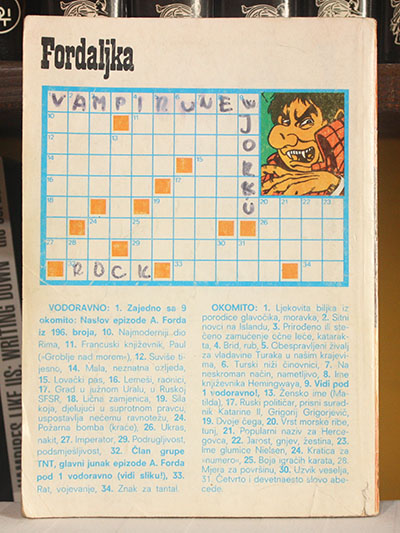 Fordaljka
VAMPIRUNE
W
JORKU
ROCK
VODORAVNO: 1. Zajedno sa 9
okomito: Naslov epizode A. Forda
iz 196. broja, 10. Najmoderniji dio
Rima, 11. Francuski književnik, Paul
(»Groblje nad morem«), 12. Suviše ti-
jesno, 14. Mala, neznatna ozljeda,
15. Lovački pas, 16. Lemeši, radnici,
17. Grad u južnom Uralu, u Ruskoj
SFSR, 18. Lična zamjenica, 19. Sila
koja, djelujući u suprotnom pravcu,
uspostavlja nečemu ravnotežu, 24.
Požarna bomba (kraće), 26. Ukras,
nakit, 27. Imperator, 29. Podrugljivost,
podsmješljivost, 32. Član grupe
TNT, glavni junak epizode A. Forda
pod 1 vodoravno (vidi sliku!), 33.
Rat, vojevanje, 34. Znak za tantal.
OKOMITO: 1. Ljekovita biljka iz
porodice glavočika, moravka, 2. Sitni
novci na Islandu, 3. Prirođeno ili ste-
čeno zamućenje očne leće, katarak-
ta, 4. Brid, rub, 5. Obespravljeni živalj
za vladavine Turaka u našim krajevi-
ma, 6. Turski niži činovnici, 7. Na
niskroman način, nametljivo, 8. Ime
književnika Hemingwaya, 9. Vidi pod
1 vodoravno!, 13. Žensko ime (Ma-
tilda), 17. Ruski političar, prisni surad-
nik Katarine II, Grigorij Grigorjevič,
19. Dvoje čega, 20. Vrst morske ribe,
tunj, 21. Popularni naziv za Herce-
govca, 22. Jarost, gnjev, žestina, 23.
Ime glumice Nielsen, 24. Kratica za
»numero«, 25. Boja igraćih karata, 28.
Mjera za površinu, 30. Uzvik veselja,
31. Četvrto i devetnaesto slovo abe-
cede.